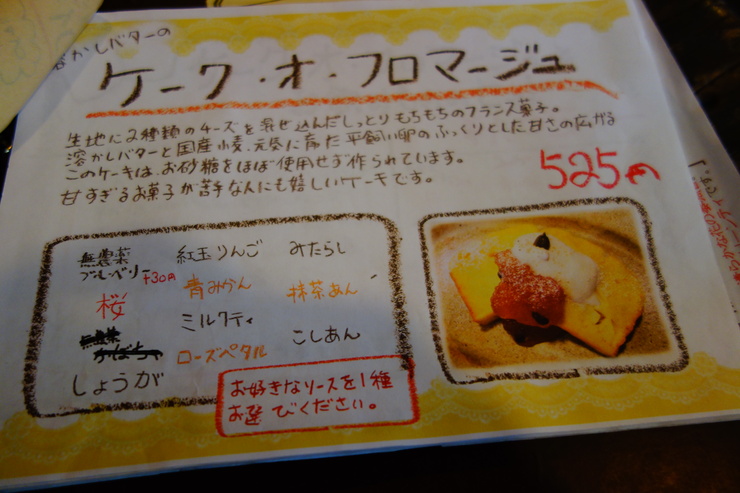 溶かしバターの
ケーク・オ・フロマージュ
生地に2種類のチーズを混ぜ込んだしっとりもちもちのフランス菓子。
溶かしバターと国産小麦、元気に育った平飼い卵のふっくらとした甘さの広がる
このケーキは、お砂糖をほぼ使用せず作られています。
甘すぎるお菓子が苦手な人にも嬉しいケーキです。
525円
無農薬
ブルーベリー
+30円
紅玉りんご
みたらし
桜
青みかん
抹茶あん
ミルクティ
こしあん
ローズペタル
しょうが
お好きなソースを1種
お選びください。